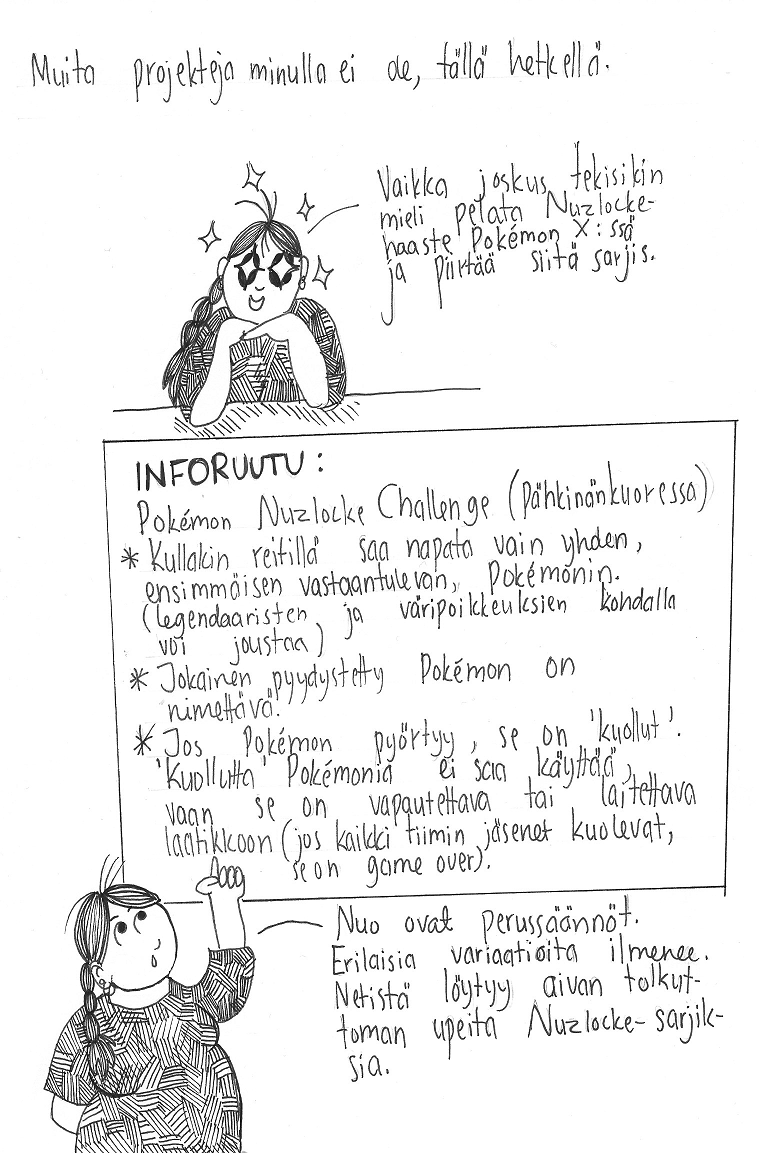 Muita projekteja minulla ei ole, tällä hetkellä.
Vaikka joskus tekisikin
mieli pelata Nuzlocke-
haaste Pokémon X:ssä
ja piirtää siitä sarjis.
INFORUUTU:
Pokémon Nuzlocke Challenge (pähkinänkuoressa)
* Kullakin reitillä saa napata vain yhden,
ensimmäisen vastaantulevan, Pokémonin.
(legendaaristen ja väripoikkeuksien kohdalla
voi joustaa)
* Jokainen pyydystetty Pokémon on
nimettävä.
* Jos Pokémon pyörtyy, se on 'kuollut'.
'Kuollutta' Pokémonia ei saa käyttää,
vaan se on vapautettava tai laitettava
laatikkoon (jos kaikki tiimin jäsenet kuolevat,
se on game over).
Nuo ovat perussäännöt.
Erilaisia variaatioita ilmenee.
Netistä löytyy aivan tolkut-
toman upeita Nuzlocke-sarjik-
sia.